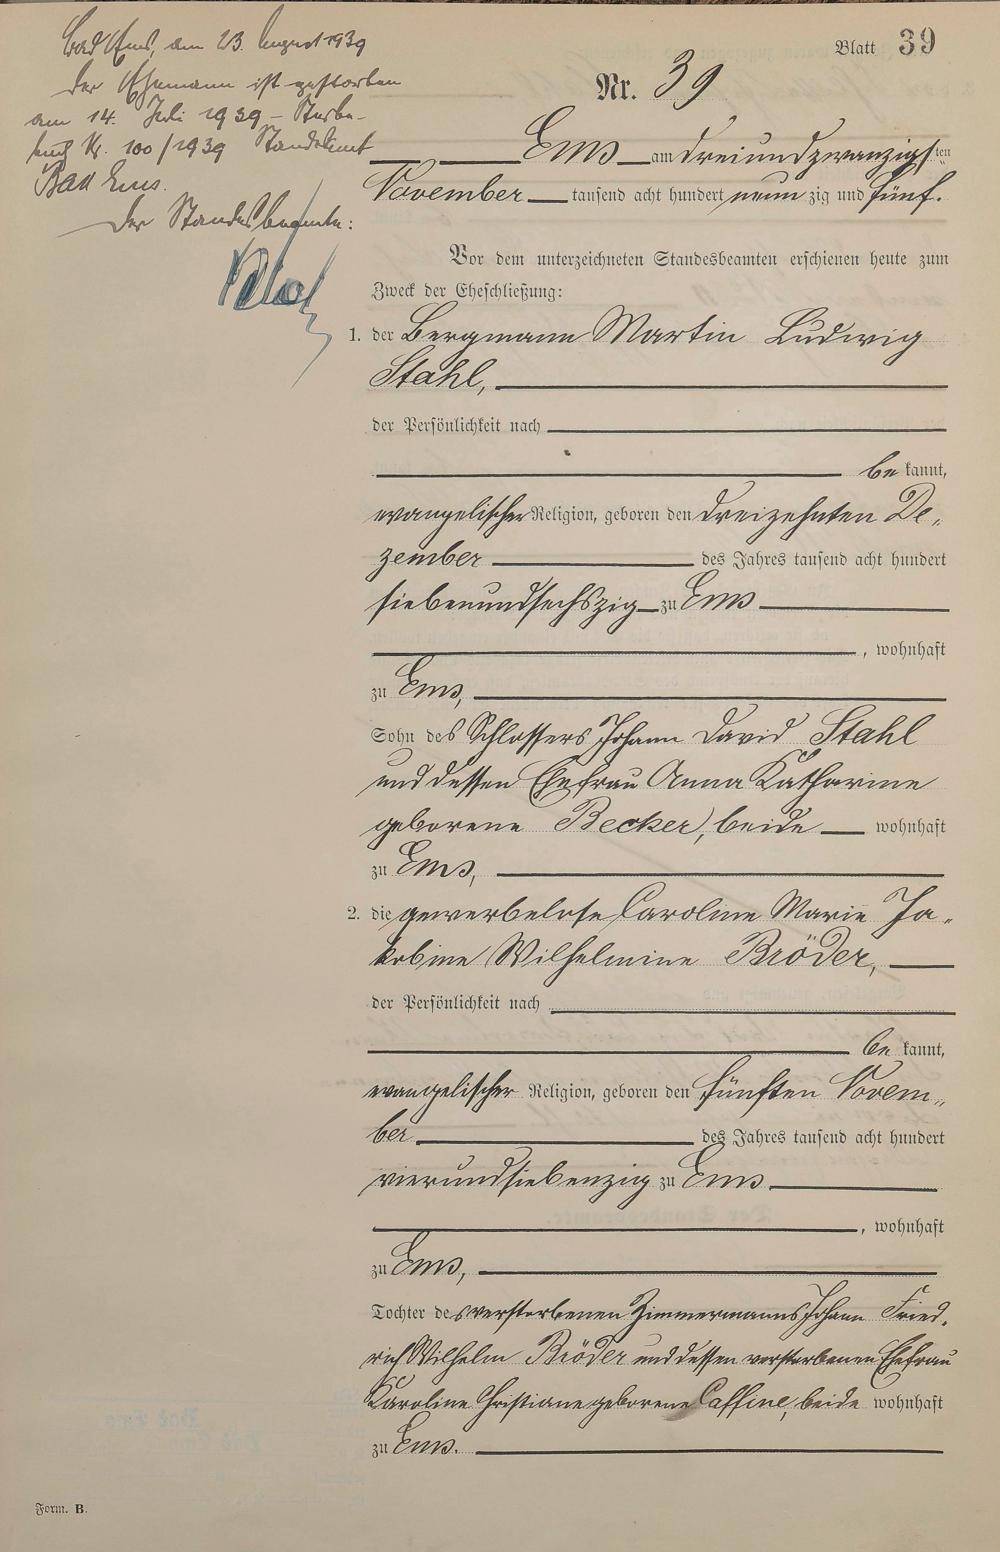 Bad Ems, am 23. August 1939
Der Ehemann ist gestorben
am 14. Juli 1939 – Sterbe-
buch Nr. 100/1939 Standesamt
Bad Ems.
Der Standesbeamte:
Blatt 39
Nr. 39
Ems am dreiundzwanzigsten
November tausend acht hundert neunzig und fünf.
Vor dem unterzeichneten Standesbeamten erschienen heute zum
Zweck der Eheschließung:
1. der Bergmann Martin Ludwig
Stahl,
der Persönlichkeit nach
bekannt,
evangelischer Religion, geboren den dreizehnten De-
zember des Jahres tausend acht hundert
siebenundsechszig zu Ems
, wohnhaft
zu Ems,
Sohn des Schlossers Johann David Stahl
und dessen Ehefrau Anna Katharine
geborene Becker, beide wohnhaft
zu Ems,
2. die gewerbelose Caroline Marie Ja-
kobine Wilhelmine Bröder,
der Persönlichkeit nach
bekannt,
evangelischer Religion, geboren den fünften Novem-
ber des Jahres tausend acht hundert
vierundsiebenzig zu Ems
, wohnhaft
zu Ems,
Tochter des verstorbenen Zimmermanns Johann Fried-
rich Wilhelm Bröder und dessen verstorbenen Ehefrau
Karoline Christiane geborene Caffine, beide wohnhaft
zu Ems.
Form. B.